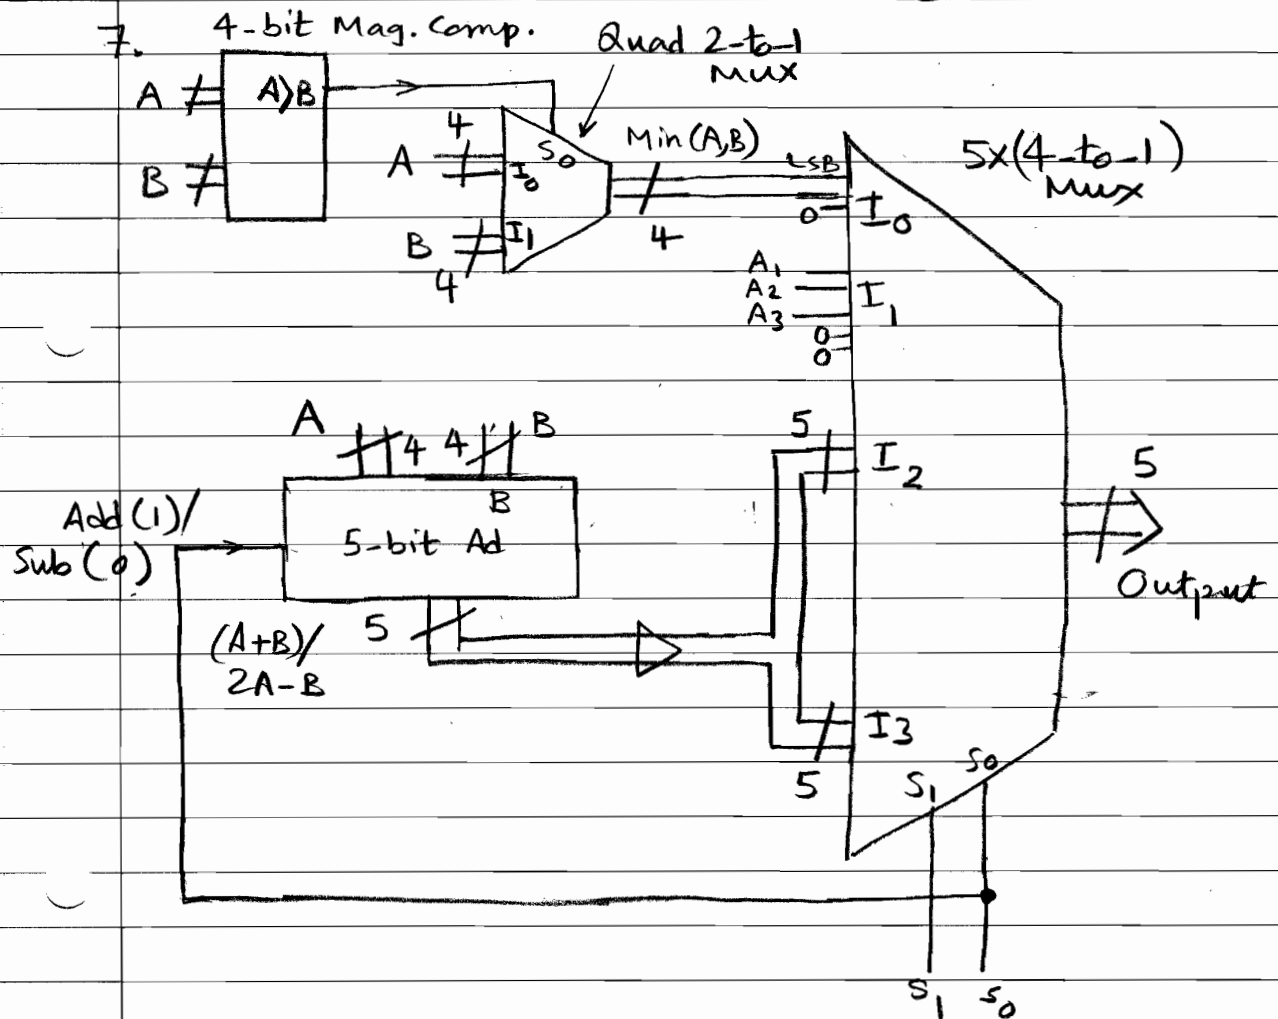 7.
4-bit Mag. Comp.
Quad 2-to-1
MUX
A
A>B
B
4
A
S0
I0
B
I1
4
Min(A,B)
4
LSB
0
I0
5x(4-to-1)
MUX
A1
A2
A3
0
0
I1
A
4
4
B
B
5-bit Ad
Add(1)/
Sub(0)
5
(A+B)/
2A-B
5
I2
5
Output
I3
5
S1
S0
S1
S0